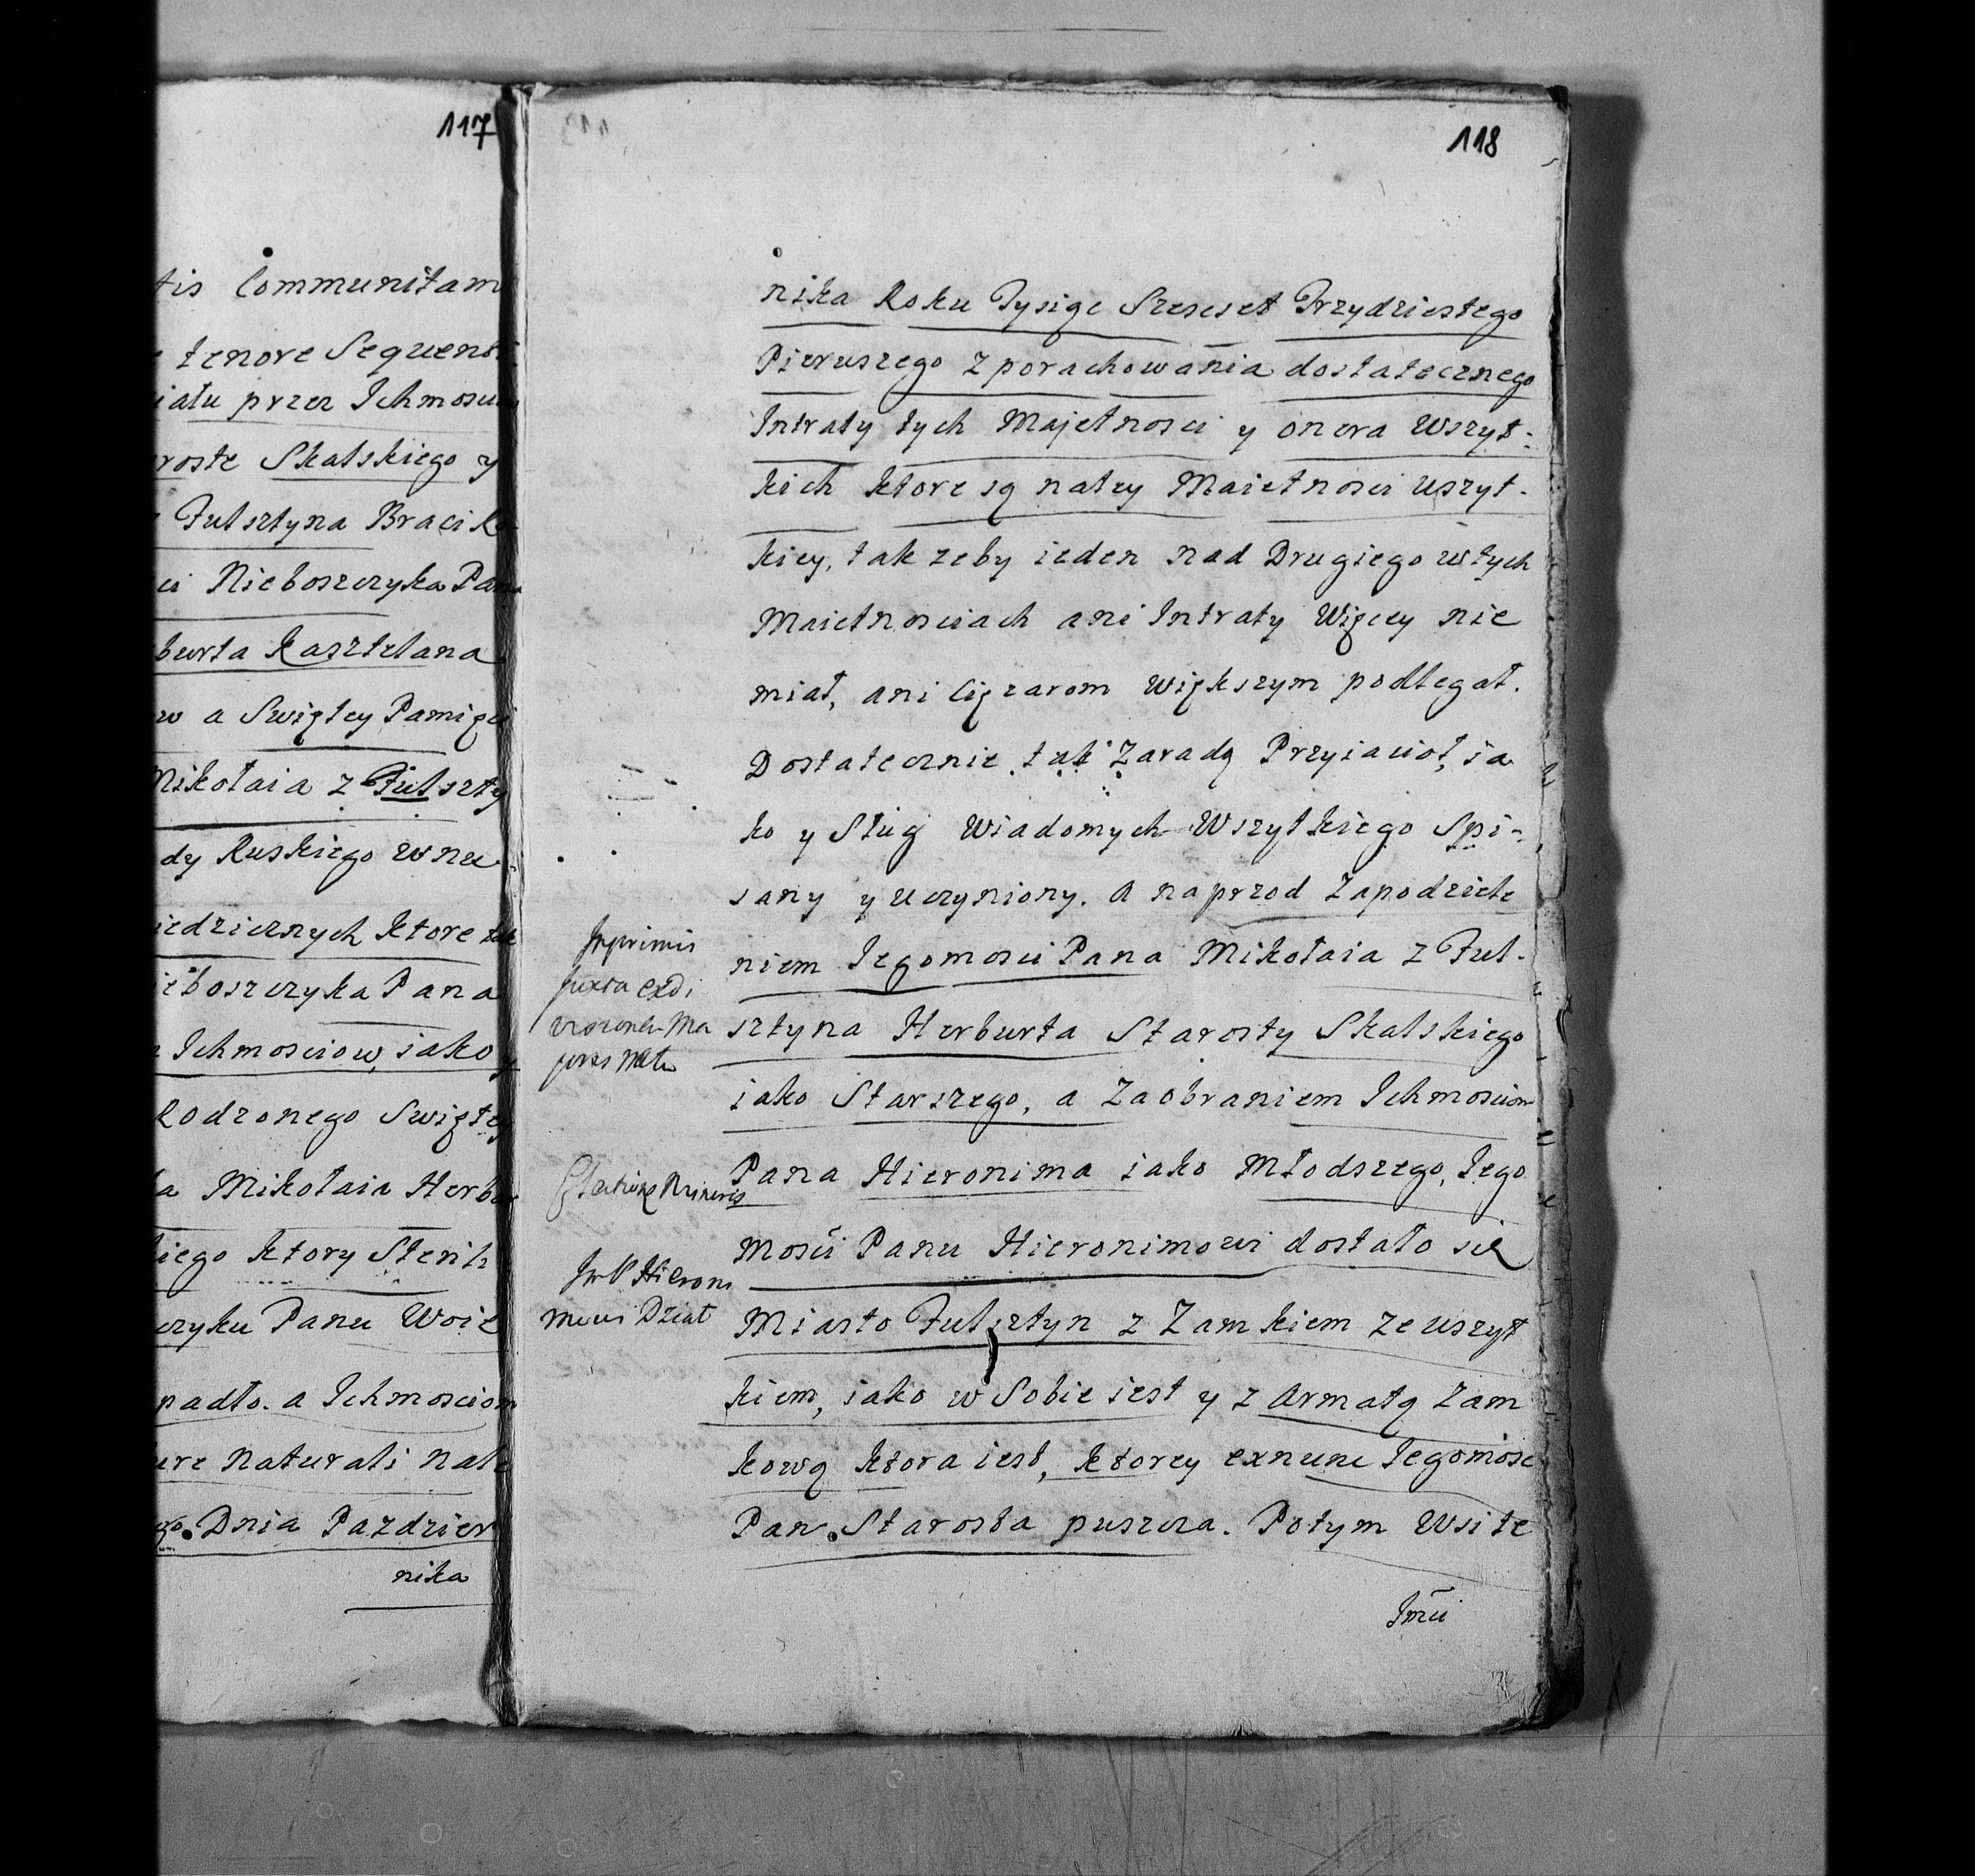 117
tis Communitam
tenore Sequenti
iału przez Ichmosciow
roste Skalskiego y
Fulsztyna Braci Ro
ci Nieboszczyka Pana
burta Kasztelana
w a Swiętey Pamięci
Mikołaia z Fulszty
dy Ruskiego wnu-
iedzicznych ktore tak
ieboszczyka Pana
Ichmosciow, iako y
Rodzonego Swiętey
a Mikołaia Herbu
kiego ktory Steril
czyku Panu Woie
padło. a Ichmosciom
ure Naturali nale
go. Dnia Pazdzier
nika
118
nika Roku Tysiąc Szescset Trzydziestego
Pierwszego z porachowania dostatecznego
Intraty tych Majetnosci y onera Wszyt-
kich ktore są natey Maietnosci wszyt-
kiey, tak zeby ieden nad Drugiego wtych
Maietnosciach ani Intraty Więcey nie
miał, ani Cięzarom większym podlegał.
Dostatecznie tak Zaradą Przyiacioł, ia
ko y Sług Wiadomych Wszytkiego Spi-
sany y uczyniony. A naprzod Zapodziele
niem Iegomosci Pana Mikołaia z Ful-
sztyna Herburta Starosty Skalskiego
iako Starszego, a Zaobraniem Ichmosciom
Pana Hieronima iako Młodszego, Iego
mości Panu Hieronimowi dostało się
Miasto Fulsztyn z Zamkiem ze wszyt
kiem, iako w Sobie iest y z Armatą Zam
kową ktora iest, ktorey exnunc Iegomosc
Pan Starosta puszcza. Potym Wsi te
Imci
Inprimis
juxta exdi
visionem Ma
joris Natu
Electione Minoris
Im P Hieroni
mowi Dział